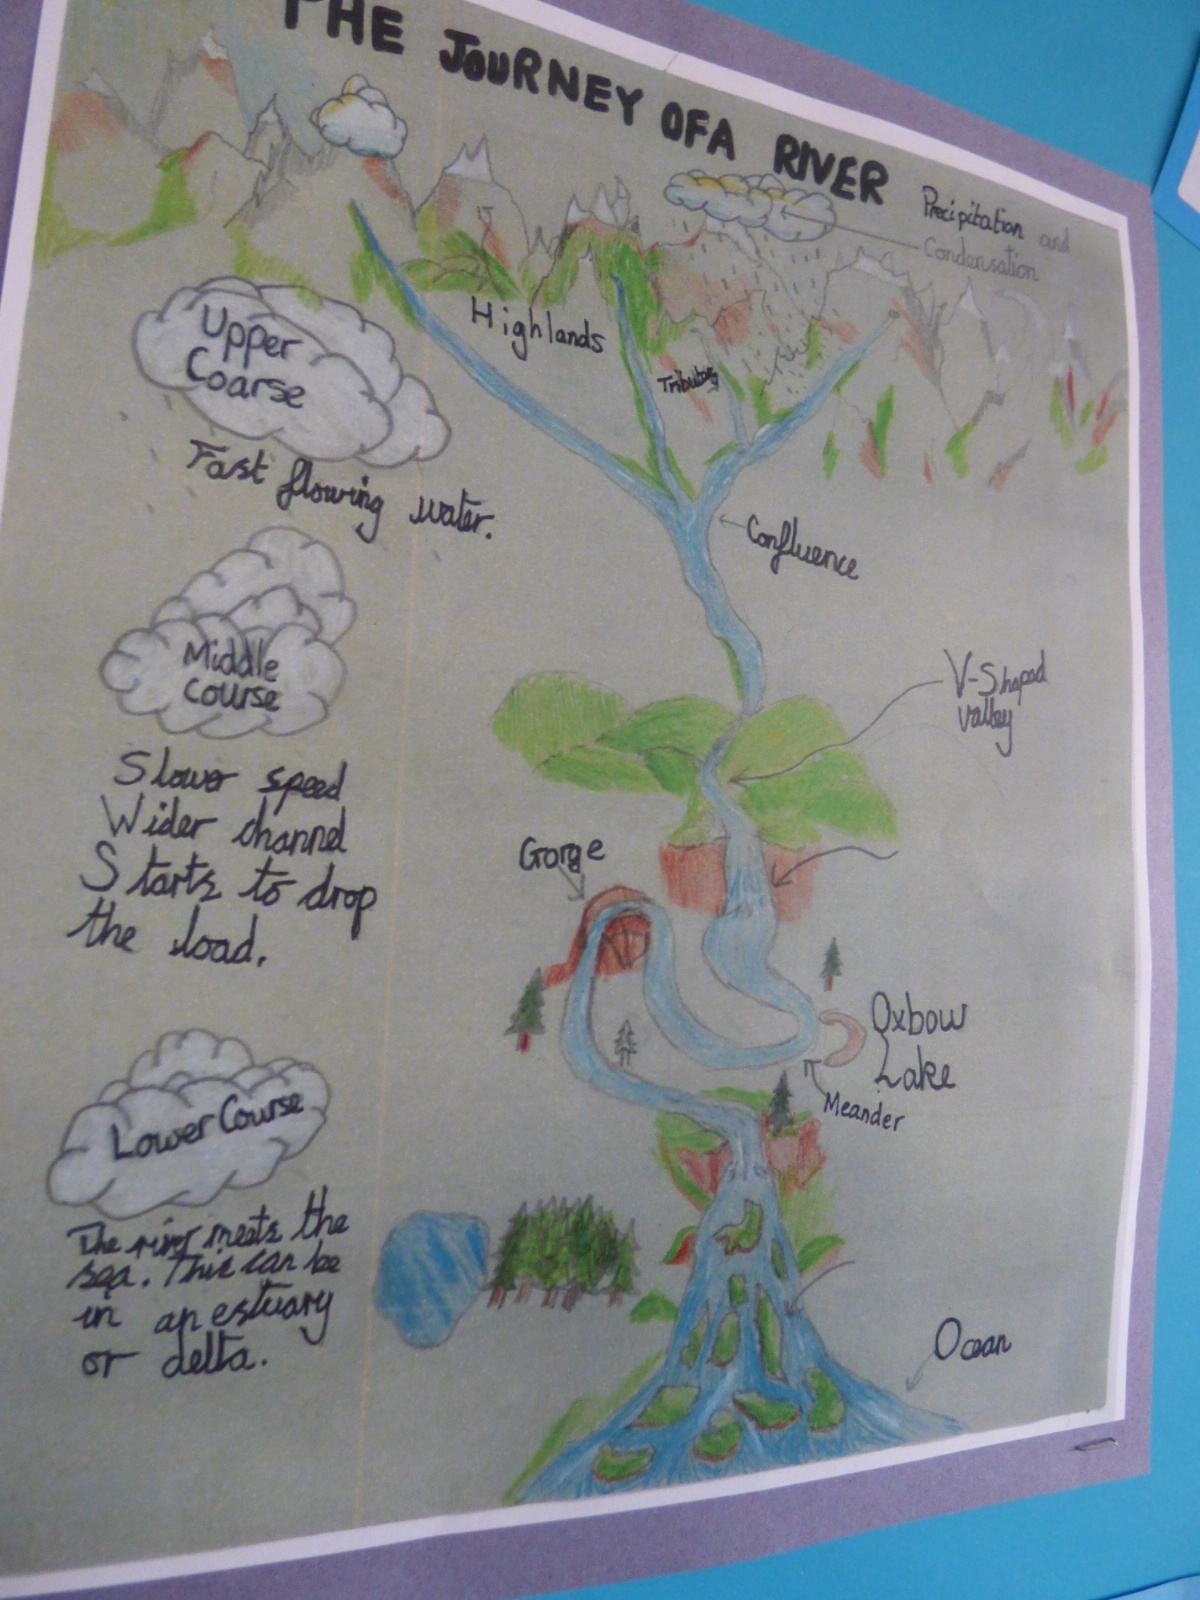 THE JOURNEY OF A RIVER
Precipitation and
Condensation
Highlands
Tributary
Upper
Coarse
Fast flowing water.
Confluence
Middle
course
V-Shaped
valley
Slower speed
Wider channel
Starts to drop
the load.
Gorge
Oxbow
Lake
Meander
Lower Course
The river meets the
sea. This can be
in an estuary
or delta.
Ocean